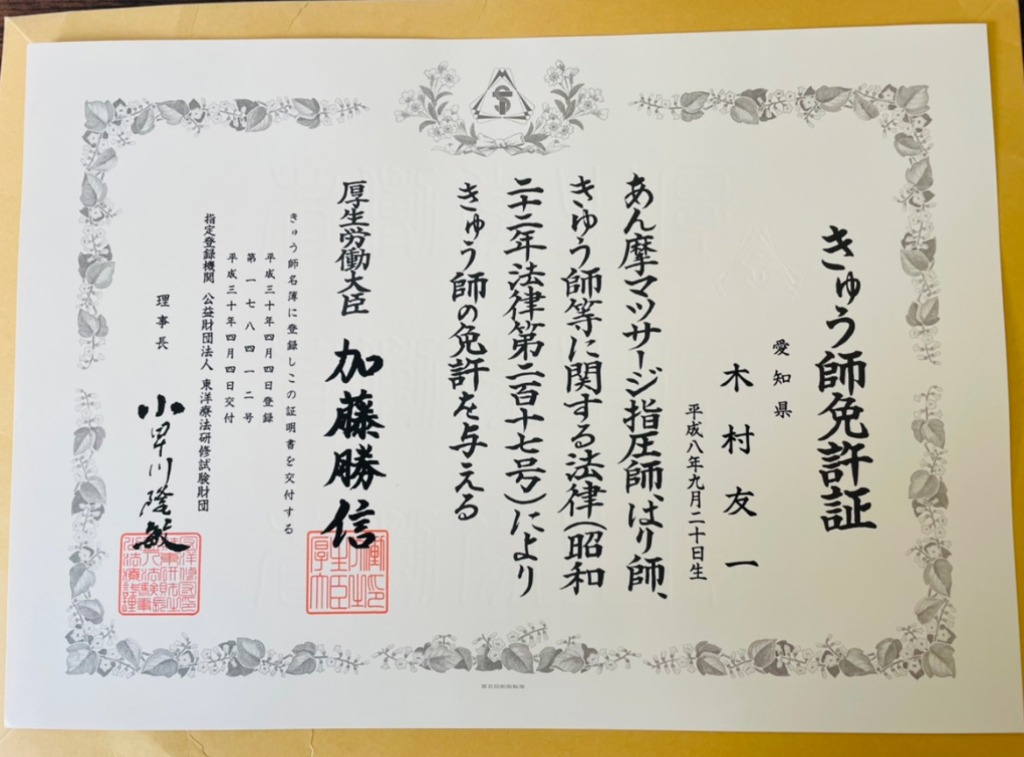 きゅう師免許証
愛知県
木村友一
平成八年九月二十日生
あん摩マツサージ指圧師、はり師、
きゆう師等に関する法律(昭和
二十二年法律第二百十七号)により
きゅう師の免許を与える
厚生労働大臣 加藤勝信
きゅう師名簿に登録しこの証明書を交付する
平成三十年四月四日登録
第一七八四一二号
平成三十年四月四日交付
指定登録機関 公益財団法人 東洋療法研修試験財団
理事長 小早川隆敏